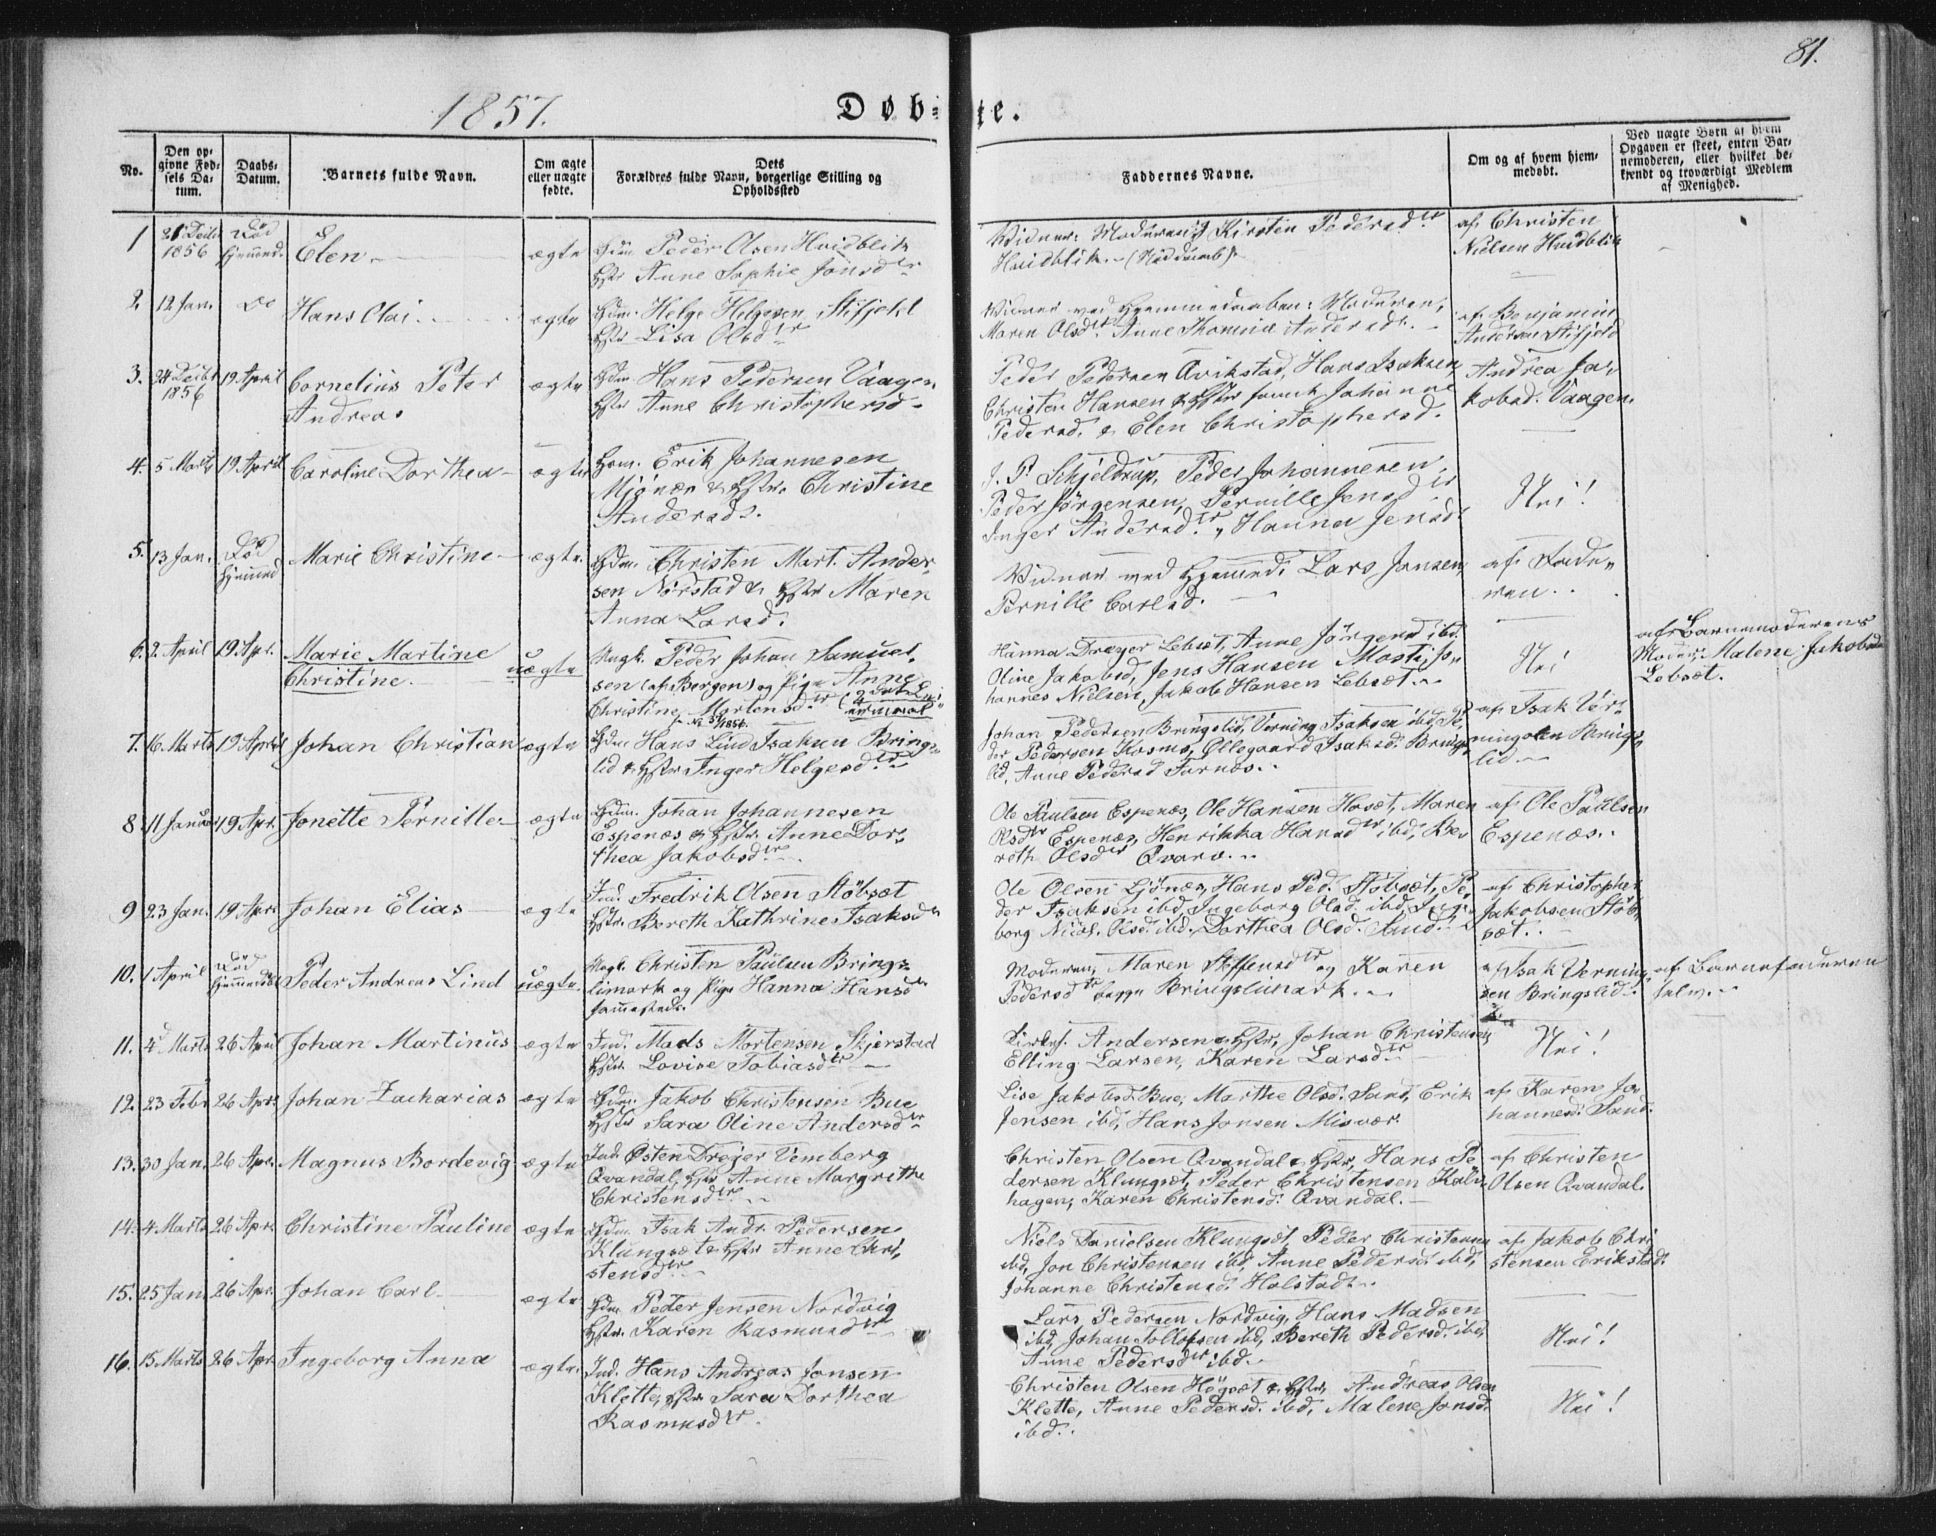 81.
1857.
Døb=te.
No.
Den op-
givne Fød-
sels Da-
tum.
Daabs-
Datum.
Barnets fulde Navn.
Om ægte
eller uægte
fødte.
Dets
Forældres fulde Navn, borgerlige Stilling og
Opholdssted
Faddernes Navne.
Om og af hvem hjem-
medøbt.
Ved uægte Børn af hvem
Opgaven er skeet, enten Bar-
nemoderen, eller hvilket be-
kjendt og troværdigt Medlem
af Menighed.
1
1856
Død
hjemmed.
Elen
ægte
Gdm. Peder Olsen Hvidblik
Hstr Anne Sophie Jonsdtr
Vidner: Moderen, Kirsten Pedersdtr
Hvidblik.
af Christen
Nielsen Hvidblik
2.
12 Jan.
Do
Hans Olai
ægte
Gdm. Helge Helgesen Stifjeld
Hstr Lisa Olsdtr
Vidner ved Hjemmedaaben: Moderen,
Maren Olsdtr Anne Andersd.
af Benjamin
Andersen Stifjeld
3.
24 Decbr
1856
19 April
Cornelius Peter
Andreas
ægte
Gdm. Hans Pedersen Vaagen
Hstr Anne Christophersd.
Peder Pedersen Qvikstad, Hans Isaksen,
Christen Hansen & Hstr Johanne
Pedersd. & Elen Christophersd.
Andrea Ja-
kobsd. Vaagen.
4.
5 Marts
19 April
Caroline Dorthea
ægte
Gdm. Erik Johannesen
Mjønæs & Hstr. Christine
Andersd.
J. P. Schjeldrup, Peder Johannesen,
Peder Jørgensen, Pernille Jensdtr
Inger Andersdtr, Hanna Jensd.
Nei!
5.
13 Jan.
Død
hjemmed
Marie Christine
ægte.
Gdm. Christen Mart. Ander-
sen Nørstad & Hstr Maren
Anna Larsd.
Vidner ved Hjemmed: Lars Jensen,
Pernille Carlsd.
af Fade-
ren.
6.
2 April
19 Apr.
Marie Martine
Christine.
uægte
Ungk. Peder Johan Samuel-
sen (af Bergen) og Pige Anne
Christine Mortensdtr
Hanna Dreyer Lebsæt, Anne Jørgensd ibd.
Oline Jakobsd, Jens Hansen Mosti, Jo-
hannes Nielsen, Jakob Hansen Lebsæt.
Nei
af Barnemoderens
Moder, Malene Jakobsd
Lebsæt.
7.
16 Marts
19 April
Johan Christian
ægte
Gdm Hans Lind Isaksen Brings-
lid & Hstr Inger Helgesdtr
Johan Pedersen Bringslid, Verning Isaksen ibd, Pe-
der Pedersen Kosmo, Ollegaard Isaksd. Brings-
lid, Anne Pedersd Furnes.
af Isak Ver-
ningsen Brings-
lid
8.
11 Januar
19 Apr.
Jonette Pernille
ægte
Gdm. Johan Johannesen
Espenæs & Hstr. Anne Dor-
thea Jakobsdtr
Ole Paulsen Espenæs, Ole Hansen Hosæt, Maren
Olsdtr Espenæs, Henrikka Hansdtr ibd, Be-
reth Olsdtr Qvarv.
af Ole Paulsen
Espenæs.
9
23 Jan.
19 Apr.
Johan Elias
ægte
Ind. Fredrik Olsen Støbsæt
Hstr. Bereth Kathrine Isaksdtr
Ole Olsen Ljønæs, Hans Ped. Støbsæt, Pe-
der Isaksen ibd, Ingeborg Olsd. ibd, Inge-
borg Nicol. Olsd. ibd. Dorthea Olsd. Sand.
af Christopher
Jakobsen Støb-
sæt.
10.
1 April
Død
hjemmedøbt
Peder Andreas Lind
uægte.
Ungk. Christen Paulsen Brings-
limark og Pige Hanna Hansdtr
sammesteds.
Moderen, Maren Steffensdtr og Karen
Pedersdtr begge Bringslimark.
af Isak Verning-
sen Bringslid
af Barnefaderen
selv.
11.
4 Marts
26 April
Johan Martinus
ægte
Ind. Mads Mortensen Skjerstad
Hstr. Lovise Tobiasdtr
Andersen & Hstr, Johan Christensen,
Elling Larsen, Karen Larsdtr
Nei!
12.
23 Febr
26 Apr.
Johan Zacharias
ægte
Gdm. Jakob Christensen Bue
Hstr Sara Oline Andersdtr
Lise Jakobsd. Bue, Marthe Olsd. Sand, Erik
Jensen ibd, Hans Jonsen Misvær
af Karen Jo-
hannesd. Sand.
13.
30 Jan.
26 Apr.
Magnus Bordevig
ægte
Ind. Østen Dreyer Vemberg
Qvandal, Hstr Anne Margrethe
Christensdtr
Christen Olsen Qvandal & Hstr, Hans Pe-
dersen Klungsæt, Peder Christensen Kalv-
hagen, Karen Christensd: Qvandal.
af Christen
Olsen Qvandal.
14.
4 Marts
26 Apr.
Christine Pauline
ægte
Gdm. Isak Andr. Pedersen
Klungsæt & Hstr Anne Chri-
stensdtr
Niels Danielsen Klungsæt, Peder Christensen
ibd, Jon Christensen ibd, Anne Pedersd. ibd,
Johanne Christensd. Halstad.
af Jakob Chri-
stensen Erikstad.
15.
25 Jan.
26 Apr.
Johan Carl
ægte
Gdm. Peder Jensen Nordvig
Hstr. Karen Rasmusdtr
Lars Pedersen Nordvig, Hans Madsen
ibd, Johan Tollofsen ibd, Bereth Pedersd. ibd,
Anne Pedersdtr ibd.
Nei!
16.
15 Marts
26 Apr.
Ingeborg Anna
ægte.
Ind. Hans Andreas Jonsen
Klette, Hstr Sara Dorthea
Rasmusdtr.
Christen Olsen Høgsæt & Hstr, Andreas Olsen
Klette, Anne Pedersd. ibd, Malene Jonsd.
ibd.
Nei!